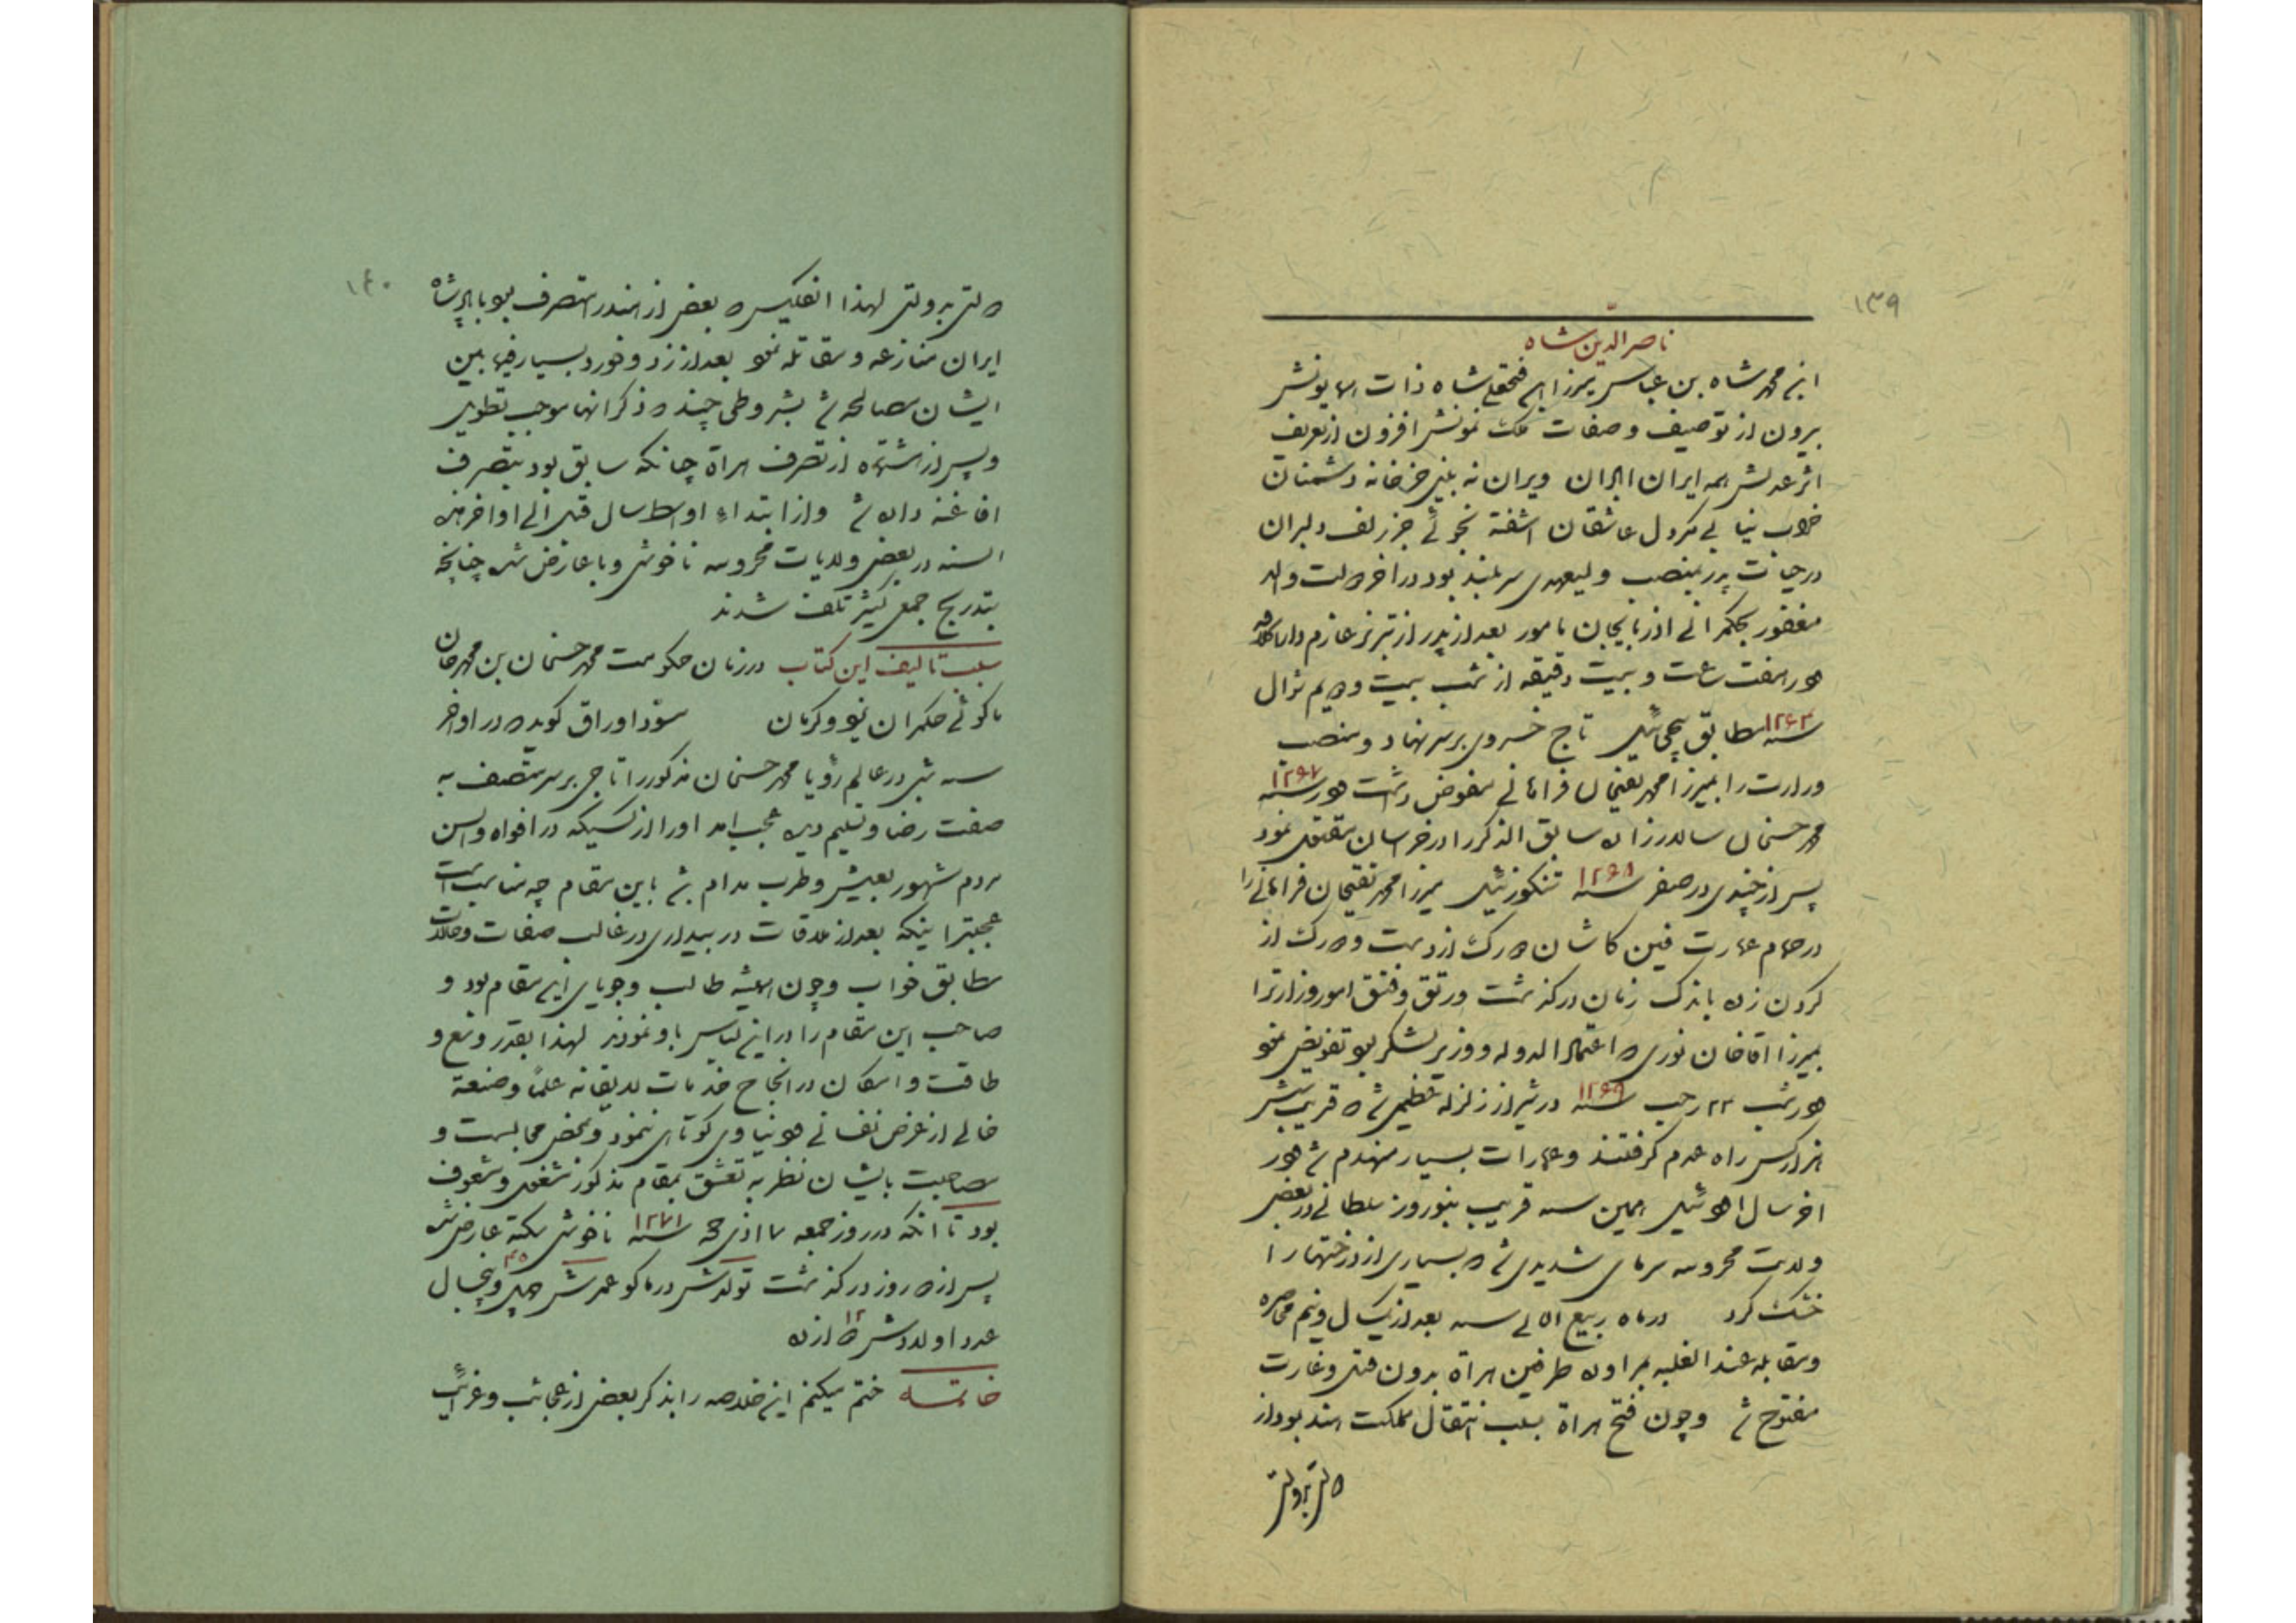 ۱۳۹
ناصر الدّین شاه
ابن محمد شاه بن عباس میرزا ابن فتحعلی شاه ذات همایونش
برون از توصیف و صفات ملک نمونش افزون از تعریف
اثر عدلش همه ایران ویران نه بینی جز خانه دشمنان
خراب نیابی مگر دل عاشقان اشفته نجوئی جز زلف دلبران
در حیات پدر بمنصب ولیعهدی سر بلند بود در اخر دولت والد
مغفور بحکمرانی اذربایجان مامور بعد از پدر از تبریز عازم دارالخلافه
هفت ساعت و بیست دقیقه از شب بیست و دویم شوال
سنه ۱۲۶۴ مطابق پیچی ئیل تاج خسروی بر سر نهاد و منصب
وزارت را بمیرزا محمد تقیخان فراهانی مفوض داشت در سنه ۱۲۶۷
محمد حسنخان سالار زاده سابق الذکر را در خراسان مقتول نمود
پس از چندی در صفر سنه ۱۲۶۸ تنکوز ئیل میرزا محمد تقیخان فراهانی را
در حمام عمارت فین کاشان رک از دست و رک از
کردن زده باندک زمان درکذشت ورتق وفتق امور وزارترا
بمیرزا اقاخان نوری اعتماد الدوله و وزیر لشکر بود تفویض نمود
در شب ۲۲ رجب سنه ۱۲۶۹ در شیراز زلزله عظیمی شد قریب شش
هزار کس راه عدم کرفتند و عمارات بسیار منهدم شد در
اخر سال اود ئیل همین سنه قریب بنوروز سلطانی در بعض
ولایت محروسه سرمای شدیدی شد بسیاری از درختها را
خشک کرد در ماه ربیع سنه بعد از یکسال و نیم محاصره
و مقابله عند الغلبه طرفین هراة بدون قتل و غارت
مفتوح شد و چون فتح هراة سبب انتقال مملکت هند بود از
دولتی بدولتی
۱۴۰
دولتی بدولتی لهذا انکلیس بعض از هند را متصرف بود با پادشاه
ایران منازعه و مقاتله نمود بعد از زد و خورد بسیار فیما بین
ایشان مصالحه شد بشروطی چند ذکر انها موجب تطویل
و پس از تصرف هراة چنانکه سابق بود بتصرف
افاغنه داده شد و از ابتداء اواسط سال قتل الی اواخر هذه
السنه در بعض ولایات محروسه ناخوشی وبا عارض شد چنانچه
بتدریج جمعی کثیر تلف شدند
سبب تالیف این کتاب در زمان حکومت محمد حسنخان بن محمد خان
ماکوئی حکمران یزد و کرمان مسود اوراق کوید در اواخر
سنه شبی در عالم رؤیا محمد حسنخان مذکور را تاجی بر سر متصف به
صفت رضا و تسلیم دیده عجب امد اورا از کسیکه در افواه و السن
مردم مشهور بعیش و طرب مدام باین مقام چه مناسبت است
عجبتر اینکه بعد از ملاقات در بیداری در غالب صفات و حالات
مطابق خواب و چون همیشه طالب و جویای این مقام بود و
صاحب این مقام را در این لباس باو نمودند لهذا بقدر وسع و
طاقت و امکان در انجاح خدمات لایقانه علماً و صنعة
خالی از غرض نفسانی و دنیاوی کوتاهی ننمود و بمحض مجالست و
مصاحبت بایشان نظر به تعشق بمقام مذکور مشغول و مشعوف
بود تا انکه در روز جمعه ذی حجه سنه ۱۲۷۱ ناخوشی سکته عارض شد
پس از ده روز درکذشت تولدش در ماکو عمرش چهل و پنجسال ۴۵
عدد اولادش دوازده ۱۲
خاتمه ختم میکنم این خلاصه را بذکر بعض از عجائب و غرائب